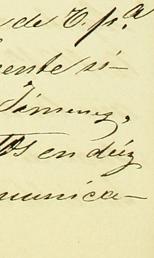 de E. p.ª
mente si-
Jimenez,
tos en diez
munica-